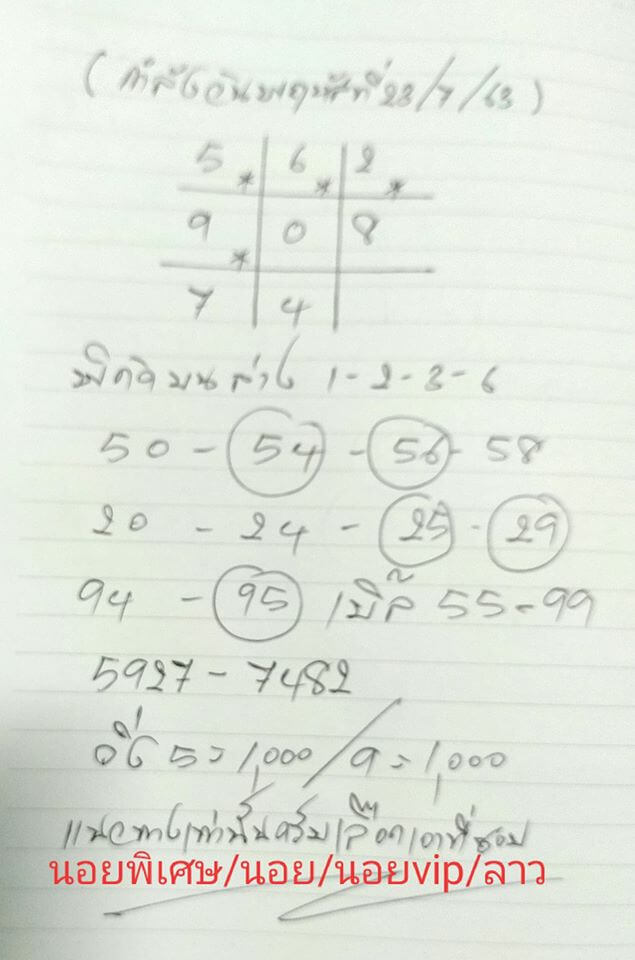 (กำลังวันพฤหัสที่ 23/7/63)
5* 6* 2*
9* 0 8
7 4
พิกัดบนล่าง 1-2-3-6
50 - 54 - 56 - 58
20 - 24 - 25 - 29
94 - 95 เบิ้ล 55-99
5927 - 7482
วิ่ง 5 = 1,000 / 9 = 1,000
แนวทางเท่านั้นครับเลือกเอาที่ชอบ
นอยพิเศษ/นอย/นอยvip/ลาว